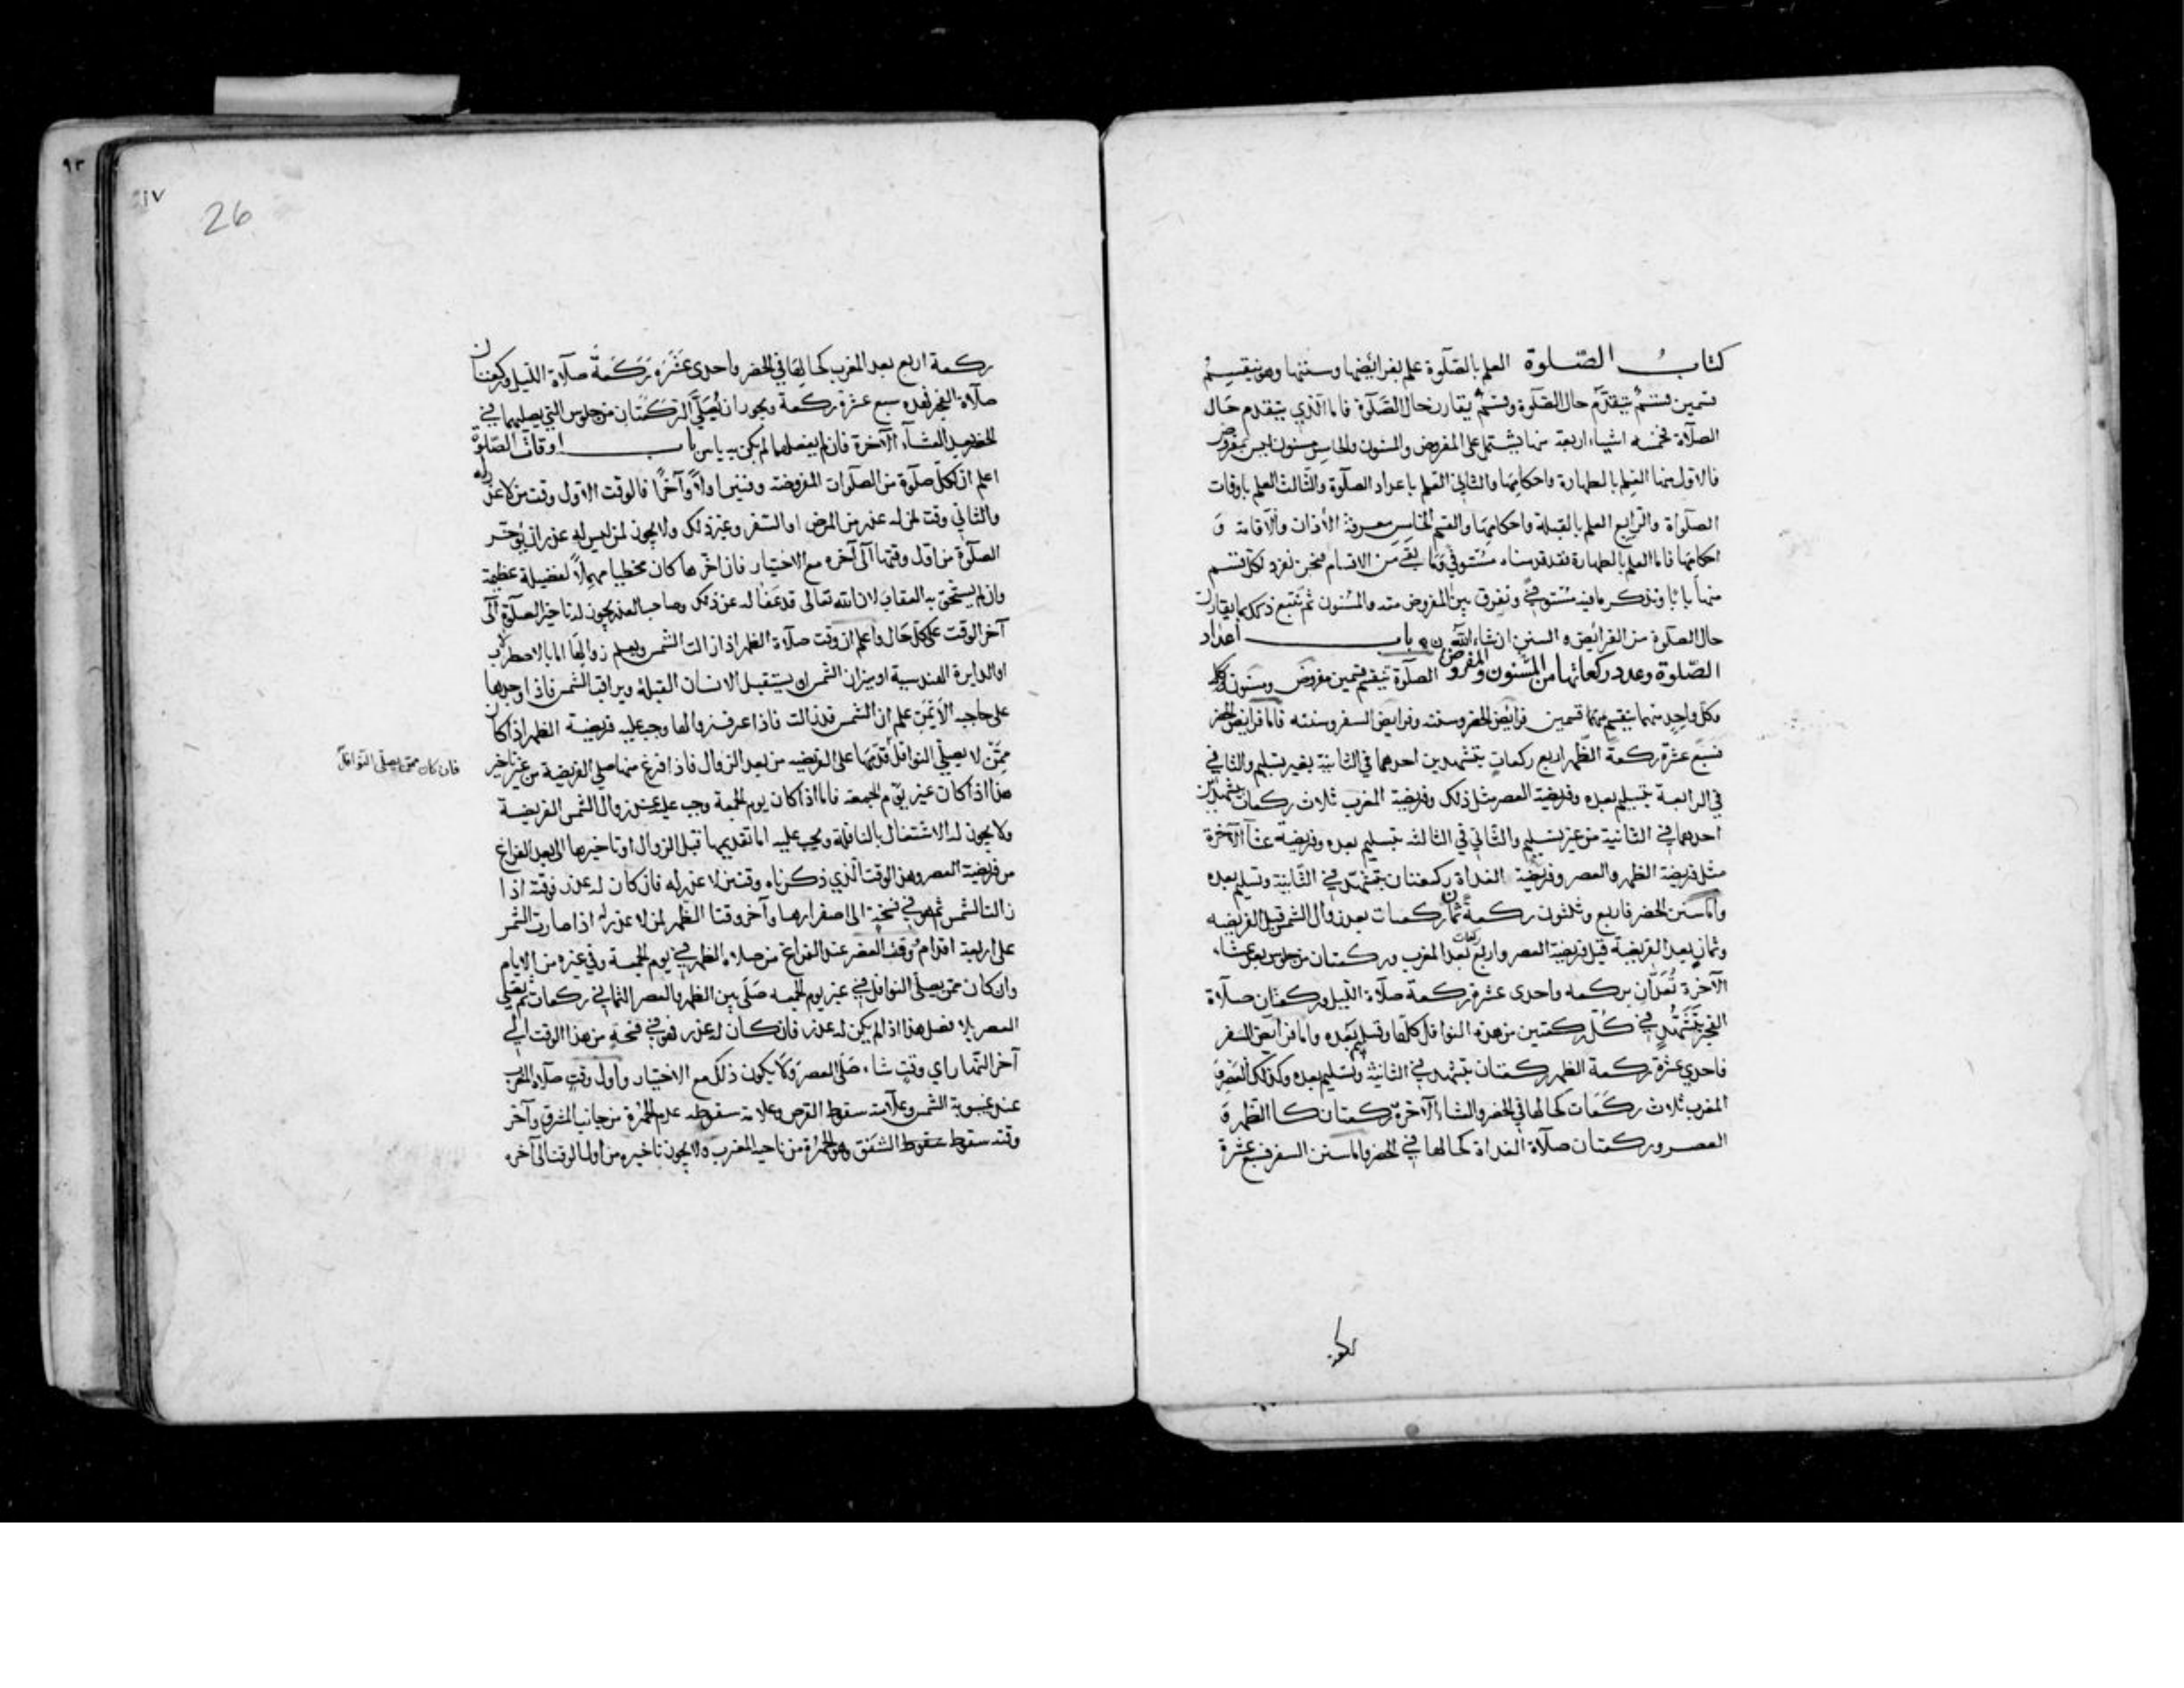 كتاب الصّلوة العلم بالصّلوة علم بفرائضها وسننها وهو ينقسم
قسمين قسم يتقدّم حال الصّلوة وقسم يقارن حال الصّلوة فاما الّذي يتقدم حال
الصلاة فخمسه اشياء اربعة منها يشتمل على المفروض والمسنون والخامس مسنون ليس بمفروض
فالاول منها العلم بالطهارة واحكامها والثاني العلم باعداد الصلوة والثالث العلم باوقات
الصلوة والرابع العلم بالقبلة واحكامها والقسم الخامس معرفة الأذان والاقامة و
احكامها فاما العلم بالطهارة فقد قدمناه مستوفي وما بقي من الاقسام فنحن نفرد لكل قسم
منها بابا ونذكر ما فيه مستوفي ونفرق بين المفروض منه والمسنون ثم نتبع ذلك بما يقارن
حال الصلوة من الفرائض و السنن ان شاء الله باب اعداد
الصّلوة وعدد ركعاتها من المسنون والمفروض الصلوة تنقسم قسمين مفروض ومسنون
وكل واحد منهما ينقسم قسمين فرائض الحضر وسننه وفرايض السفر وسننه فاما فرايض الحضر
فسبع عشرة ركعة الظهر اربع ركعات بتشهدين احدهما في الثانية بغير تسليم والثاني
في الرابعة بتسليم بعده وفريضة العصر مثل ذلك وفريضة المغرب ثلاث ركعات بتشهدين
احدهما في الثانية من غير تسليم والثاني في الثالثه بتسليم بعده وفريضة عشآ الآخرة
مثل فريضة الظهر والعصر وفريضة الغداة ركعتان بتشهد في الثانية وتسليم بعده
وامّا سنن الحضر فاربع وثلثون ركعة ثمان ركعات بعد زوال الشمس قبل الفريضه
وثمان بعد الفريضة قبل فريضة العصر واربع ركعات بعد المغرب وركعتان من جلوس بعد عشاء
الآخرة تُعدّان بركعه واحدى عشرة ركعة صلاة الليل وركعتان صلاة
الفجر بتشهد في كل ركعتين من هذه النوافل كلها وتسليم بعده واما فرائض السفر
فاحدي عشرة ركعة الظهر ركعتان بتشهد في الثانية وتسليم بعده وكذلك العصر و
المغرب ثلاث ركعات كحالها في الحضر والعشاء الآخرة ركعتان كالظهر و
العصر وركعتان صلاة الغداة كحالها في الحضر واما سنن السفر فسبع عشرة
ركعة
٩٣
١٧
26
ركعة اربع بعد المغرب كحالها في الحضر واحدى عشرة ركعة صلاة الليل وركعتان
صلاة الفجر فهذه سبع عشرة ركعة ويجوز ان يصلّي الركعتان من جلوس التي يصليهما في
الحضر بعد العشآء الآخرة فان لم يفعلهما لم يكن به باس باب اوقات الصّلوة
اعلم ان لكل صلوة من الصلوات المفروضة وقتين اولاً وآخرًا فالوقت الاول وقت من لا عذر له
والثاني وقت لمن له عذر من المرض او السّفر وغير ذلك ولا يجوز لمن ليس له عذر ان يؤخر
الصلوة من اول وقتها الى آخره مع الاختيار فان اخّرها كان مخطيا مهملاً لفضيلة عظيمة
وان لم يستحق به العقاب لان الله تعالى قد عفا له عن ذلك وصاحب العذر يجوز له تاخير الصلوة الى
آخر الوقت على كل حال واعلم ان وقت صلاة الظهر اذا زالت الشمس ويعلم زوالها اما بالاصطرلاب
او الدايرة الهندسية او ميزان الشمس او يستقبل الانسان القبلة ويراقب الشمس فاذا وجدها
على حاجبه الأيمن علم ان الشمس قد زالت فاذا عرف زوالها وجب عليه فريضة الظهر اذا كان
ممّن لا يصلّي النوافل قدّمها على الفريضه من بعد الزوال فاذا فرغ منها صلي الفريضة من غير تاخير
فان كان ممن يصلي النوافل
هذا اذا كان غير يوم الجمعة فاما اذا كان يوم الجمعة وجب عليه عند زوال الشمس الفريضة
ولا يجوز له الاشتغال بالنافلة ويجب عليه اما تقديمها قبل الزوال او تاخيرها الى بعد الفراغ
من فريضة العصر وهذا الوقت الّذي ذكرناه وقت من لا عذر له فان كان له عذر فوقته اذا
زالت الشمس ثم هو في فسحة الى اصفرارها وآخر وقت الظهر لمن لا عذر له اذا صارت الشمس
على اربعة اقدام ووقت العصر عند الفراغ من صلاة الظهر في يوم الجمعة وفي غيره من الايام
وان كان ممن يصلّي النوافل في غير يوم الجمعه صلّى بين الظهر والعصر الثماني ركعات ثم يصلي
العصر بلا فصل هذا اذا لم يكن له عذر فان كان له عذر فهو في فسحة من هذا الوقت الى
آخر النّهار اي وقت شاء صلّى العصر ولا يكون ذلك مع الاختيار واول وقت صلاة المغرب
عند غيبوبة الشمس وعلامته سقوط القرص وعلامة سقوطه عدم الحمرة من جانب المشرق وآخر
وقته سقوط سقوط الشفق وهو الحمرة من ناحية المغرب ولا يجوز تاخيره من اول الوقت الى آخره